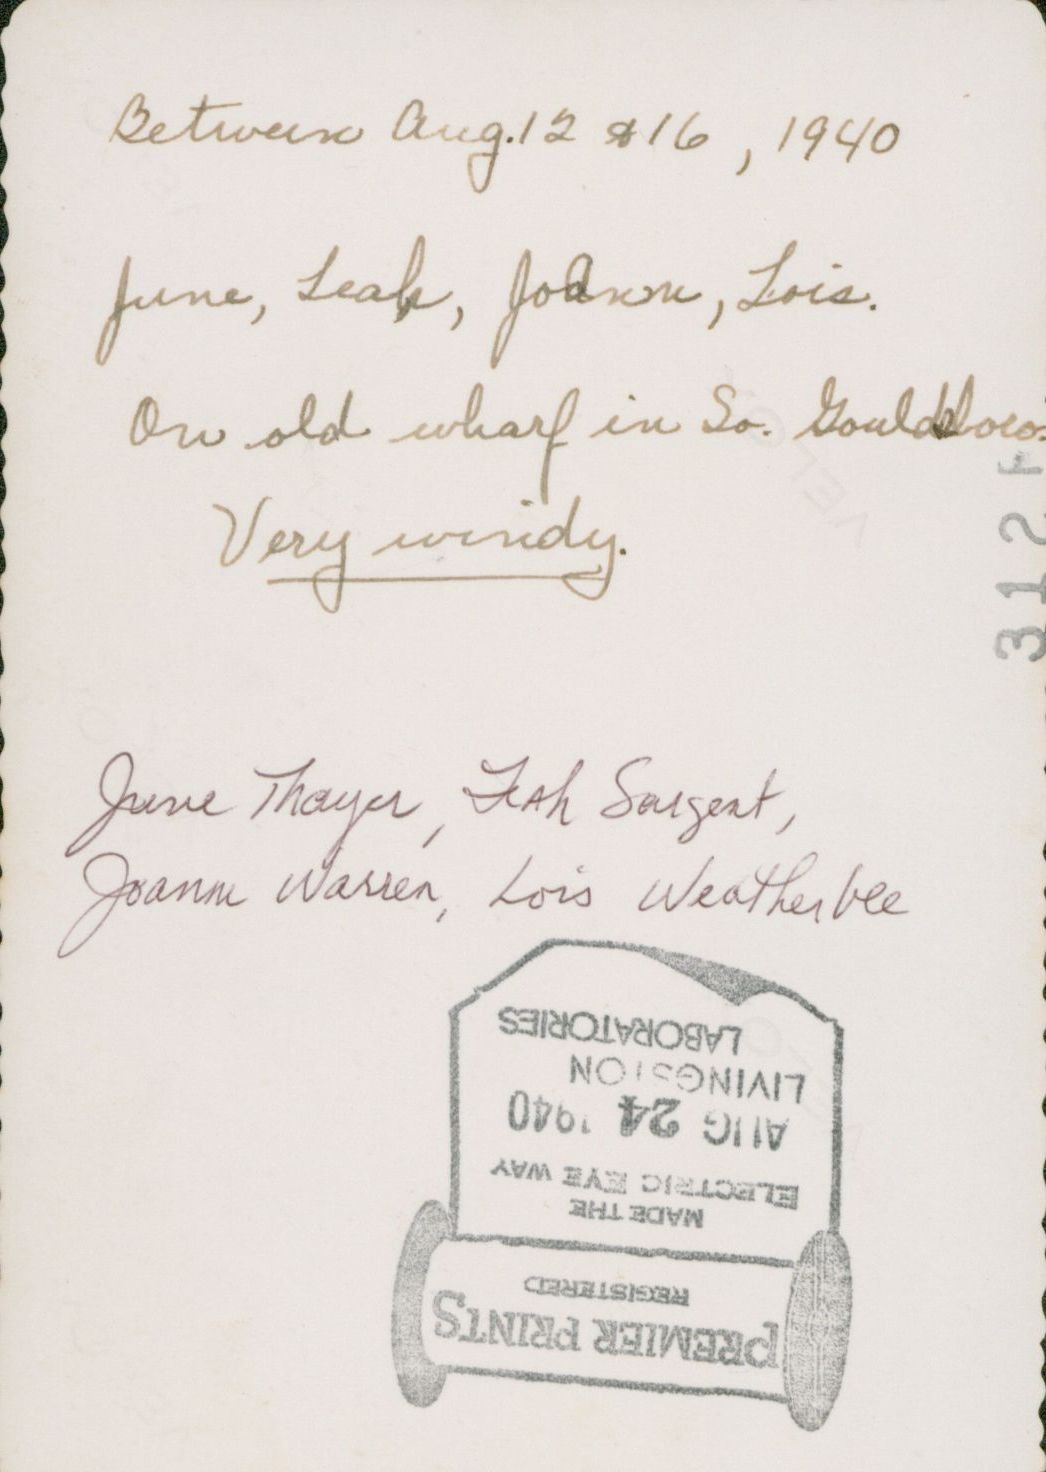 Between Aug. 12 & 16, 1940
June, Leah, Joann, Lois.
On old wharf in So. Gouldsboro.
Very windy.
3125
June Thayer, Leah Sargent,
Joann Warren, Lois Weatherbee
PREMIER PRINTS
REGISTERED
MADE THE
ELECTRIC EYE WAY
AUG 24 1940
LIVINGSTON
LABORATORIES
VELOX